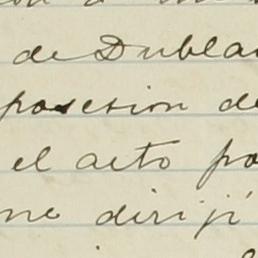 de Dubla
posesion de
el acto po
me diriji